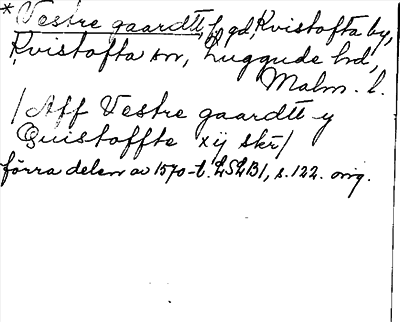 *Vestre gaardtt, hgd, Kvistofta by,
Kvistofta sn, Luggude hd,
Malm. l.
/Aff Vestre gaardtt y
Quistoffte xij skr/
förra delen av 1570-t. LSLB1, s. 122. orig.